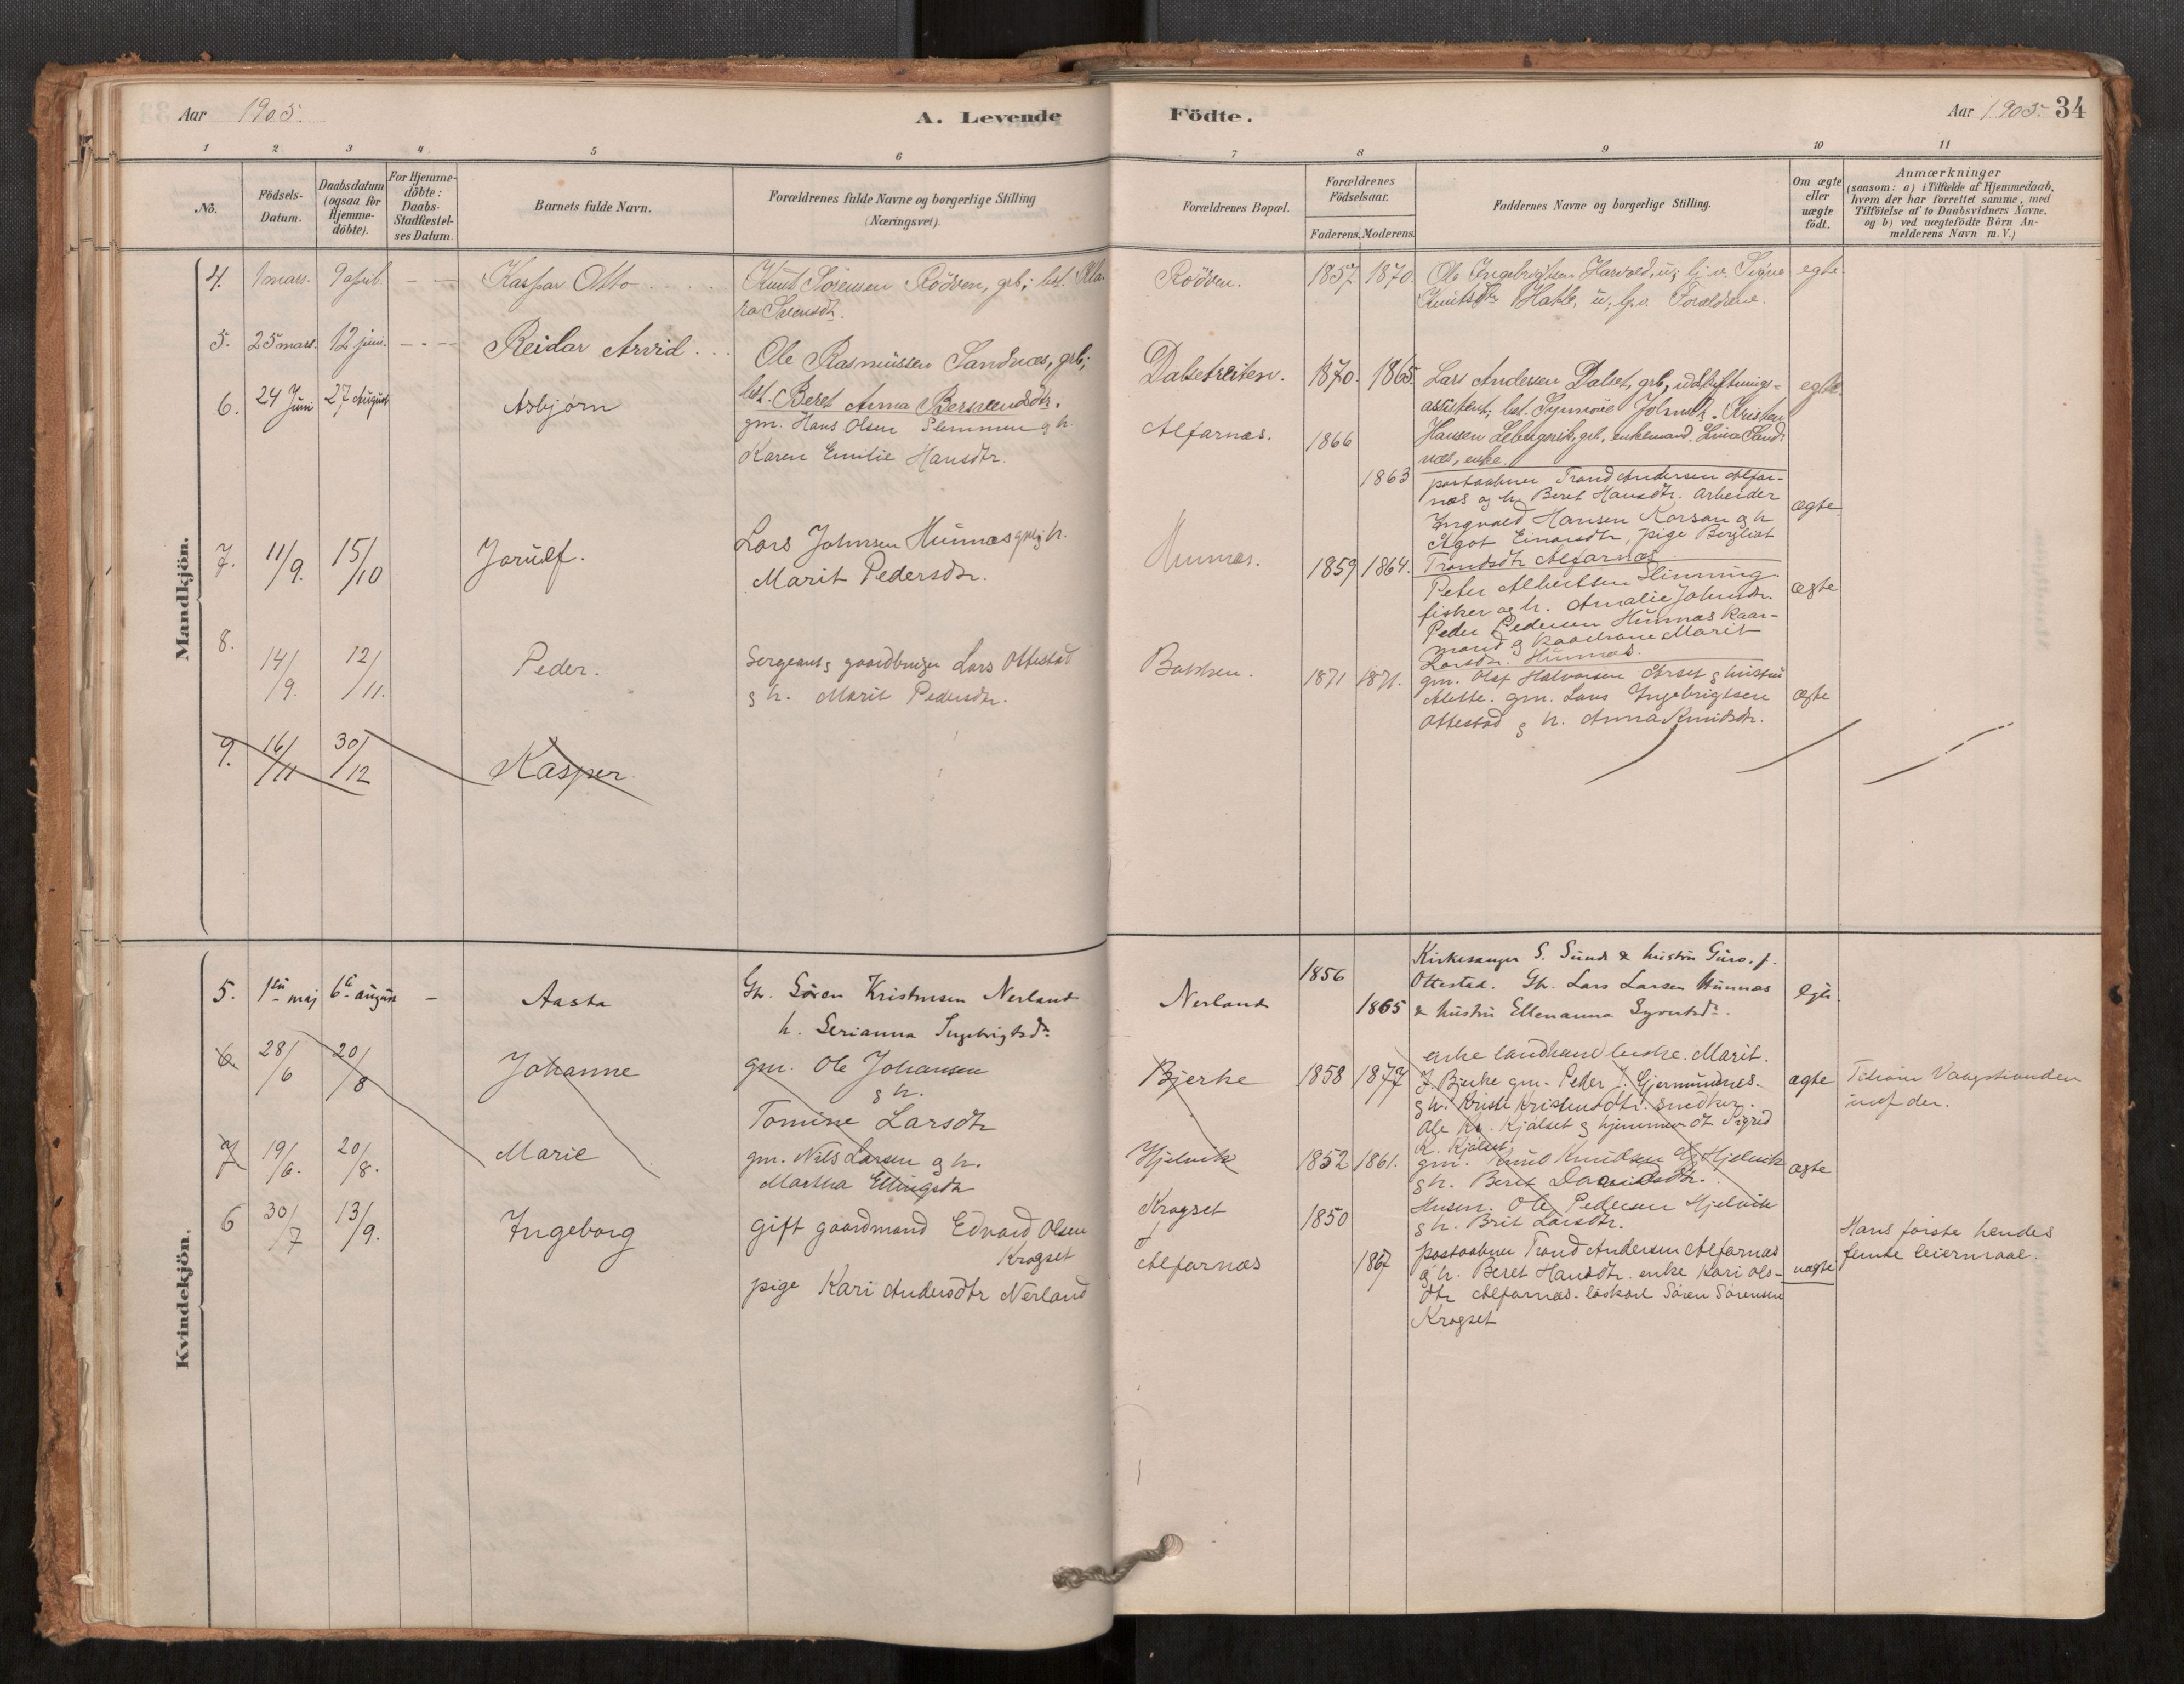 Aar 1905.
A. Levende Födte.
Aar 1905. 34
1 2 3 4 5 6 7 8 9 10 11
No.
Födsels-
Datum.
Daabsdatum
(ogsaa for
Hjemme-
döbte).
For Hjemme-
döbte:
Daabs-
Stadfæstel-
ses Datum.
Barnets fulde Navn.
Forældrenes fulde Navne og borgerlige Stilling
(Næringsvei).
Forældrenes Bopæl.
Forældrenes
Födselsaar.
Faderens. Moderens.
Faddernes Navne og borgerlige Stilling.
Om ægte
eller
uægte
födt.
Anmærkninger
(saasom: a) i Tilfælde af Hjemmedaab,
hvem der har forrettet samme, med
Tilföielse af to Daabsvidners Navne,
og b) ved uægtefödte Börn An-
melderens Navn m. V.)
Mandkjön.
4. 1 mars. 9 april. - - Kaspar Otto
Knut Sörensen Rödven, grb; bet. Kla-
ra Svensdtr.
Rödven. 1857 1870.
Ole Ingebrigtsen Harvold, u; lj. v. Signe
Knutsdtr Hatle, u, Forældrene.
egte
5. 25 mars. 12 juni. - - - Reidar Arvid
Ole Rasmussen Sandnæs, grb;
bet. Beret Anna Berntsdtr.
Dalsetreiten. 1870. 1865.
Lars Andersen Dalset, grb, udskiftnings-
assistent; bet. Synnöve Johnsdtr. Kristen
Hansen grb, enkemand. Lina Sand-
næs, enke.
egte.
6. 24 Juni 27 August Asbjørn
gm. Hans Olsen Slemmen g h.
Karen Emilie Hansdtr.
Alfarnæs. 1866 1863
postaabner Trond Andersen Alfar-
næs og h. Beret Hansdtr. arbeider
Ingvald Hansen Korsan g h
Agot Einarsdtr, pige Bergliot
Trondsdtr Alfarnæs
ægte
7. 11/9. 15/10 Jorulf.
Lars Johnsen Hunnæs gm g h.
Marit Pedersdtr.
Hunnæs. 1859 1864.
Peter Albertsen Slinning
fisker og h. Amalie Johnsdtr.
Peder Pedersen Hunnæs kaar-
mand g kaarkone Marit
Larsdtr. Hunnæs.
ægte
8. 14/9. 12/11. Peder.
Sergeant g gaardbruger Lars Ottestad
g h. Marit Pedersdtr.
Bakken. 1871 1871.
gm. Olaf Halvorsen Årset g hustru
Alette. gm. Lars Ingebrigtsen
Ottestad g h. Anna Knudsdtr.
ægte
9. 16/11 30/12 Kasper
Kvindekjön.
5. 1ste maj 6te august - Aasta
Gbr. Sören Kristensen Nerland
h. Serianna Ingebrigtsdr.
Nerland 1856 1865
Kirkesanger S. Sund & hustru Guro, f.
Ottestad. Gbr. Lars Larsen Hunnæs
& hustru Ellenanna Syvertsdr.
egte.
6 28/6 20/8 Johanne
gm. Ole Johansen
g h.
Tomine Larsdtr
Bjerke 1858 1877
enke landhandlerske. Marit.
J. Bjerke gm. Peder J. Gjermundnes.
g h. Kristi Kristensdtr. snedker.
Ole Kr. Kjølset g hjemmev. dt Sigrid
K. Kjølset
ægte
Tilhører Vaagstranden
7 19/6. 20/8. Marie
gm. Nils Larsen g h.
Martha Ellingsdtr
Hjelvik 1852 1861.
gm. Knud Knudsen Hjelvik
g h. Berit Davidsdtr.
Husm. Ole Pedersen Hjelvik
g h. Brit Larsdtr.
ægte
6 30/7 13/9. Ingeborg
Gift gaardmand Edvard Olsen
Krogset
pige Kari Andersdtr Nerland
Krogset
Alfarnæs 1850 1867
postaabner Trond Andersen Alfarnæs
g h. Beret Hansdtr. enke Kari Ols-
dtr Alfarnæs. løskarl Søren Sørensen
Krogset
uægte
Hans første hendes
femte leiermaal.